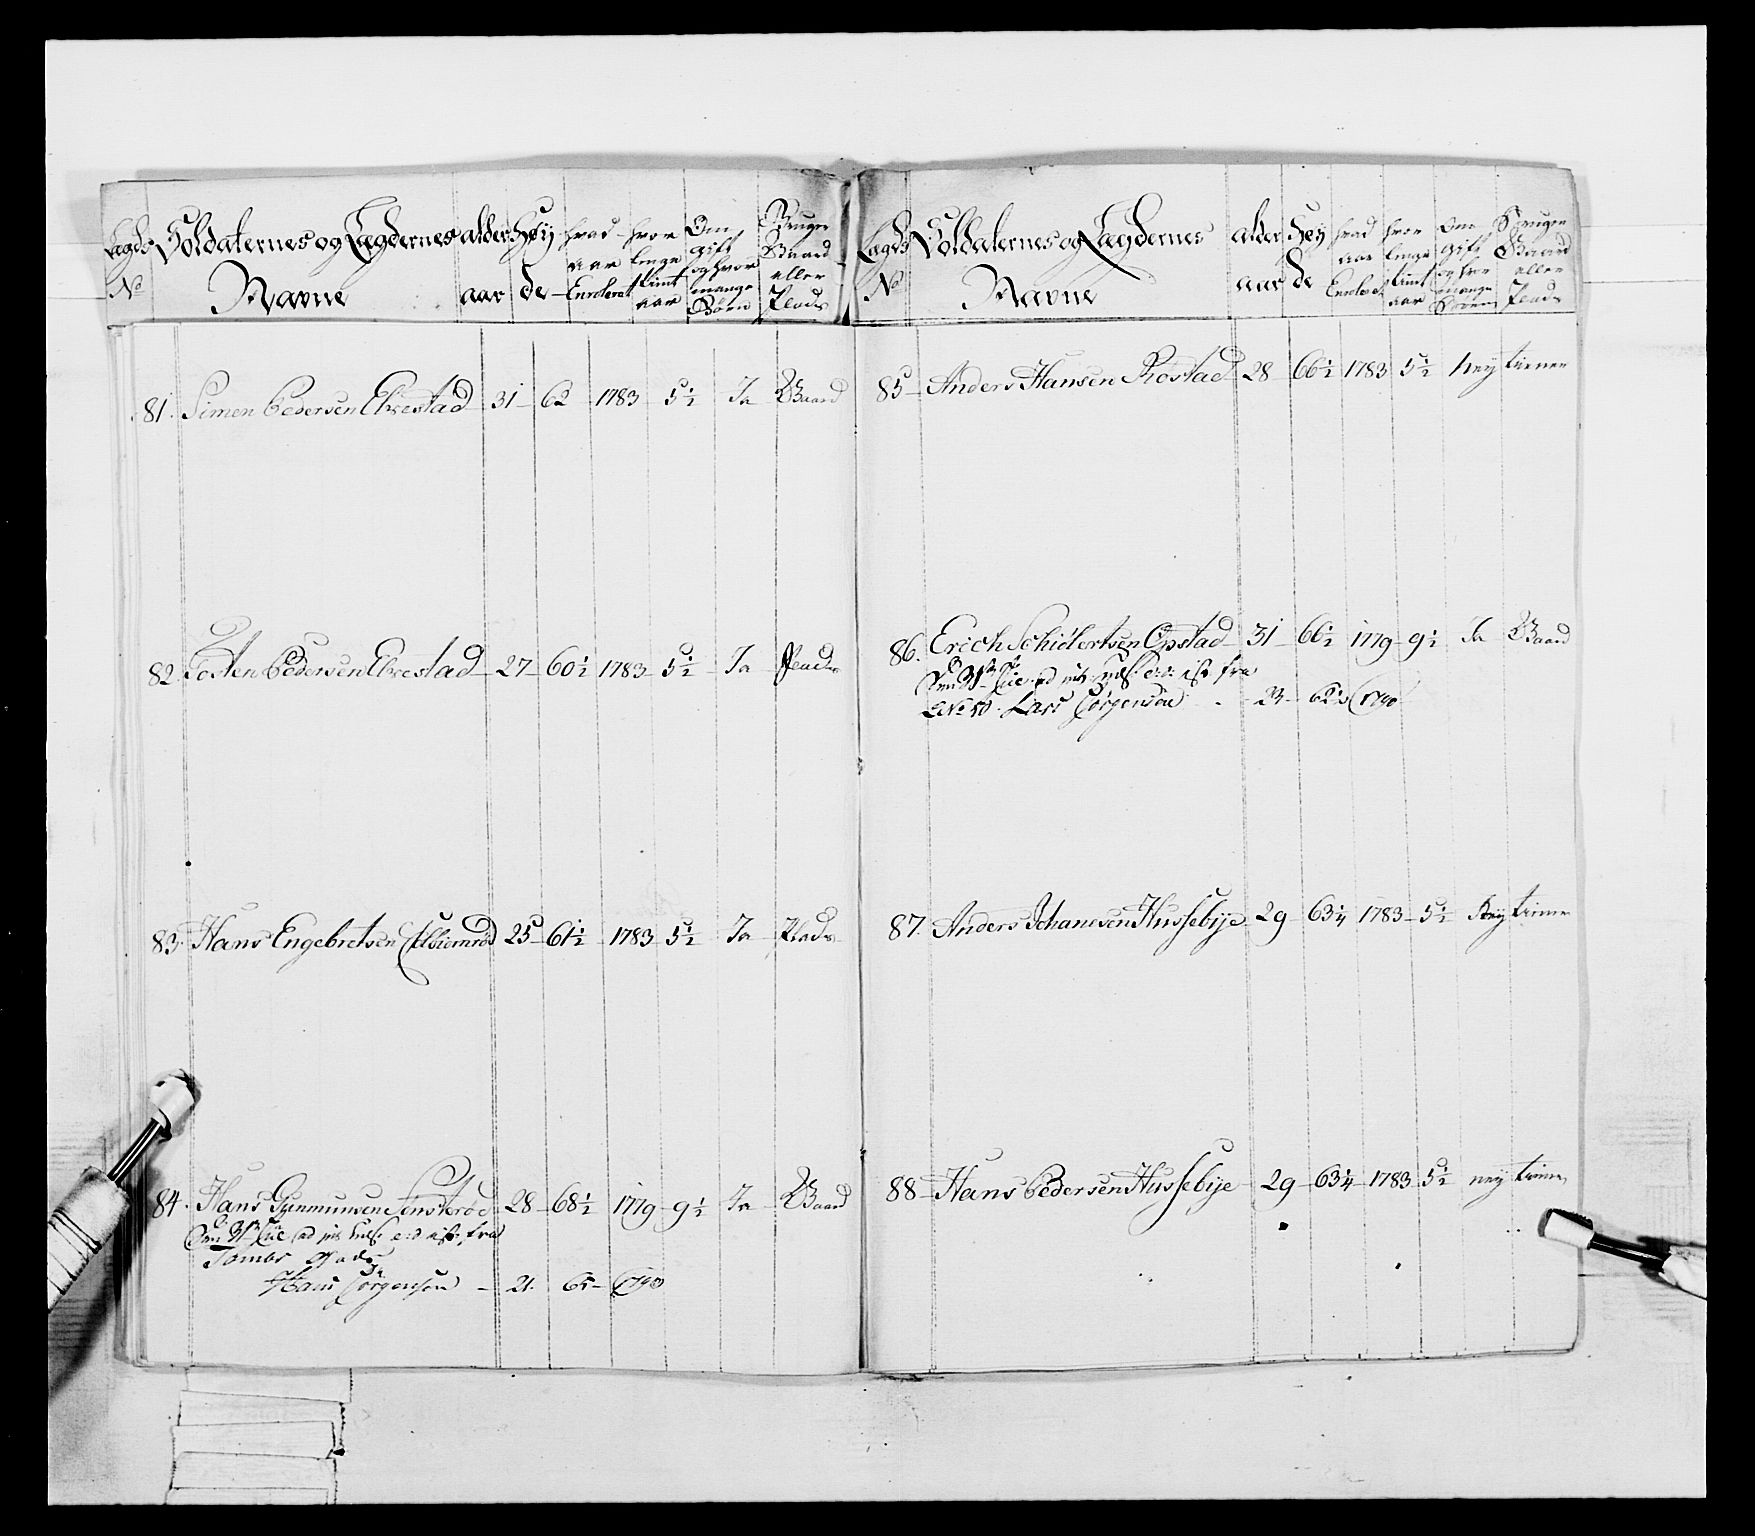 Lægds No
Soldaternes og Lægdernes Navne
alder aar
Høy de
hvad aar Enroleret
hvor længe tient aar
Om gift og hvor mange Børn
Bruger Gaard eller Plads
81. Simen Pedersen Elvestad 31 62 1783 5½ Ja Gaard
82 Tosten Pedersen Elvestad 27 60½ 1783 5½ Ja Plads
83. Hans Engebretsen 25 61½ 1783 5½ Ja Plads
84. Hans Gunmunsen Sønsterød 28 68½ 1779 9½ Ja Gaard
fra
Tombs Gods
Hans Jørgensen 21. 65 1790
Lægds No
Soldaternes og Lægdernes Navne
alder aar
Høy de
hvad aar Enroleret
hvor længe tient aar
Om Gift og hvor mange Børn
Bruger Gaard eller Plads
85 Anders Hansen Rostad 28 66½ 1783 5½ Ney tiener
86. Erich Schiölertsen Opstad 31 66½ 1779 9½ Ja Gaard
fra
Lars Jørgensen 23 62½ 1790
87. Anders Johanesen Hussebÿe 29 63¼ 1783 5½ Ney tiener
88 Hans Pedersen Hussebÿe 29 63¼ 1783 5½ ney tiener